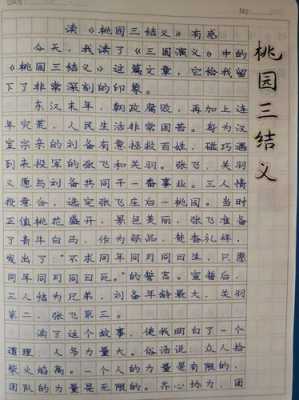 读《桃园三结义》有感
今天，我读了《三国演义》中的
《桃园三结义》这篇文章，它给我留
下了非常深刻的印象。
东汉末年，朝政腐败，再加上连
年灾荒，人民生活非常困苦。身为汉
室宗亲的刘备有意拯救百姓，碰巧遇
到来投军的张飞和关羽。张飞、关羽
又愿与刘备共同干一番事业。三人情
投意合，选定张飞庄后一桃园。当时
正值桃花盛开，景色美丽，张飞准备
了青牛白马，作为祭品，焚香礼拜，
发出了“不求同年同月同日生，只愿
同年同月同日死。”的誓言。宣誓后，
三人结为兄弟，刘备年龄最大，关羽
第二，张飞第三。
读了这个故事，使我明白了一个
道理，人多力量大。俗话说：众人拾
柴火焰高。一个人的力量是有限的，
团队的力量是无限的。齐心协力，团
桃园三结义